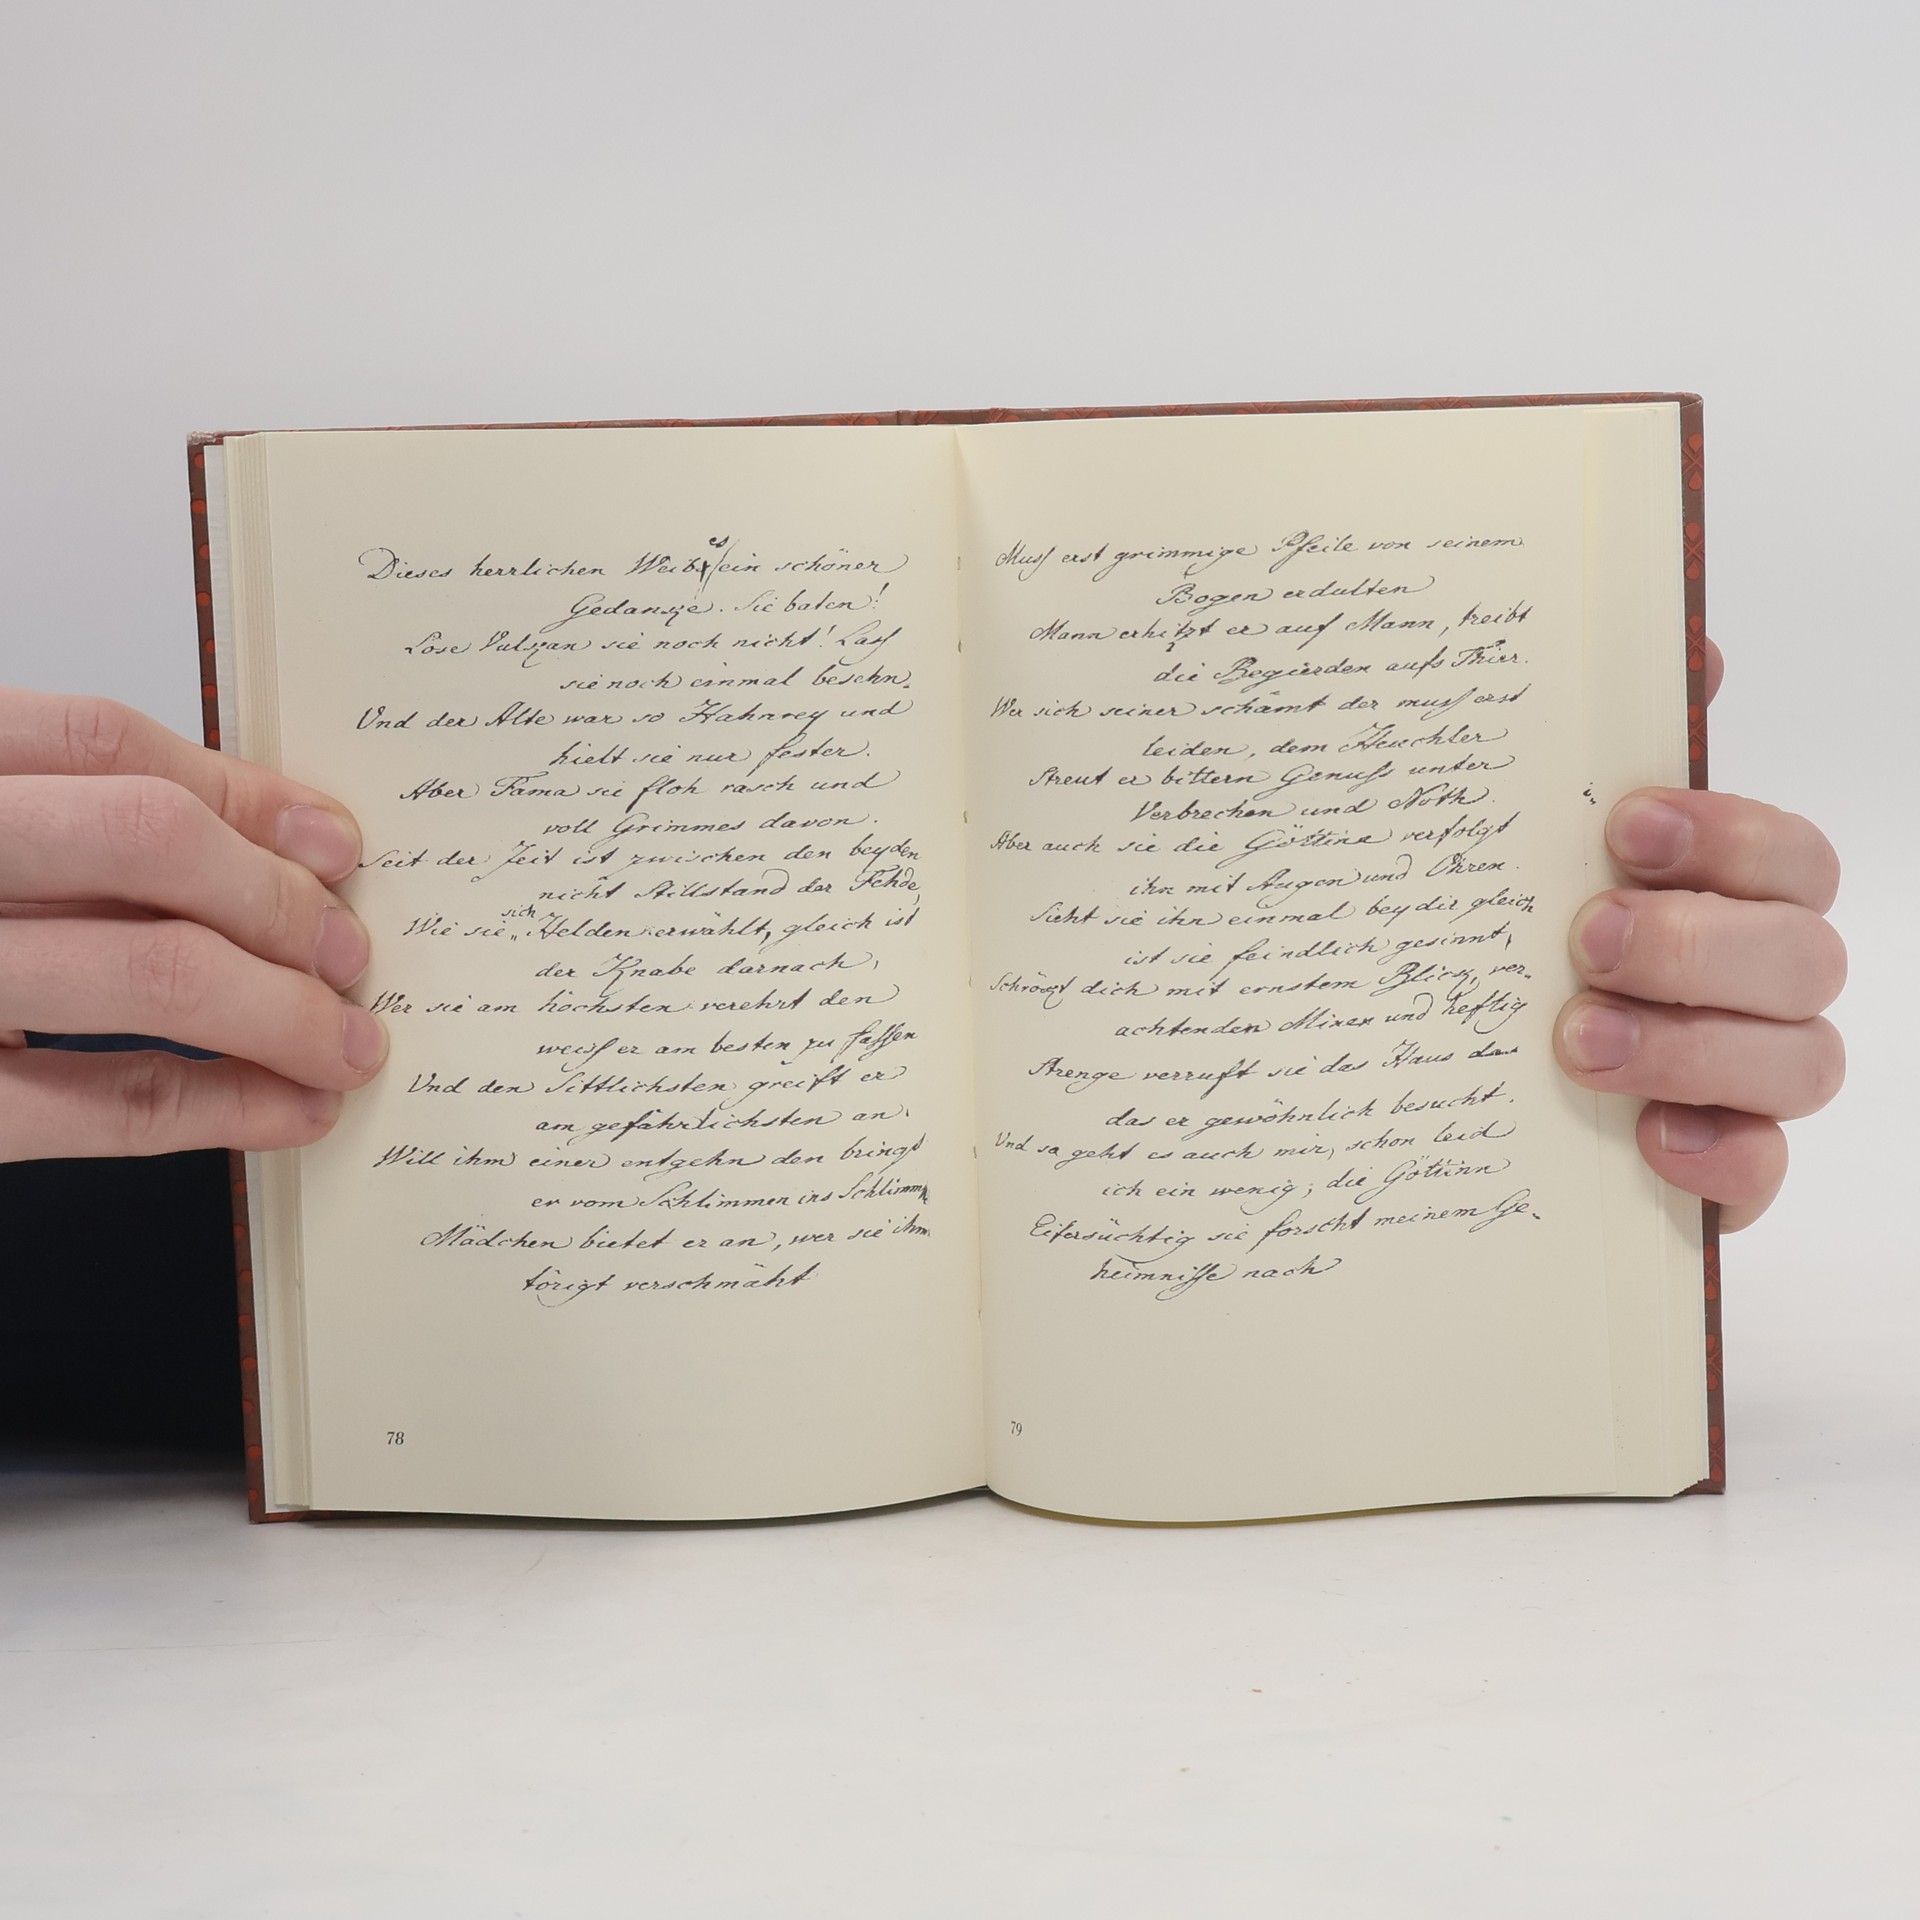 Dieses herrlichen Weibes ein schöner
Gedanke. Sie baten!
Löse Vulkan sie noch nicht! Lass
sie noch einmal besehn.
Und der Alte war so Hahnrey und
hielt sie nur fester.
Aber Fama sie floh rasch und
voll Grimmes davon.
Seit der Zeit ist zwischen den beyden
nicht Stillstand der Fehde,
Wie sie sich Helden erwählt, gleich ist
der Knabe darnach,
Wer sie am höchsten verehrt den
weiss er am besten zu fassen
Und den Sittlichsten greift er
am gefährlichsten an.
Will ihm einer entgehn den bringt
er vom Schlimmen ins Schlimmste
Mädchen bietet er an, wer sie ihm
törigt verschmäht
78
Muss erst grimmige Pfeile von seinem
Bogen erdulten
Mann erhitzt er auf Mann, treibt
die Begierden aufs Thier.
Wer sich seiner schämt der muss erst
leiden, dem Heuchler
Streut er bittern Genuss unter
Verbrechen und Noth.
Aber auch sie die Göttinn verfolgt
ihn mit Augen und Ohren.
Sieht sie ihn einmal bey dir gleich
ist sie feindlich gesinnt,
Schröckt dich mit ernstem Blick, ver-
achtenden Minen und heftig
Strenge verruft sie das Haus
das er gewöhnlich besucht.
Und so geht es auch mir, schon leid
ich ein wenig; die Göttinn
Eifersüchtig sie forscht meinem Ge-
heimnisse nach
79